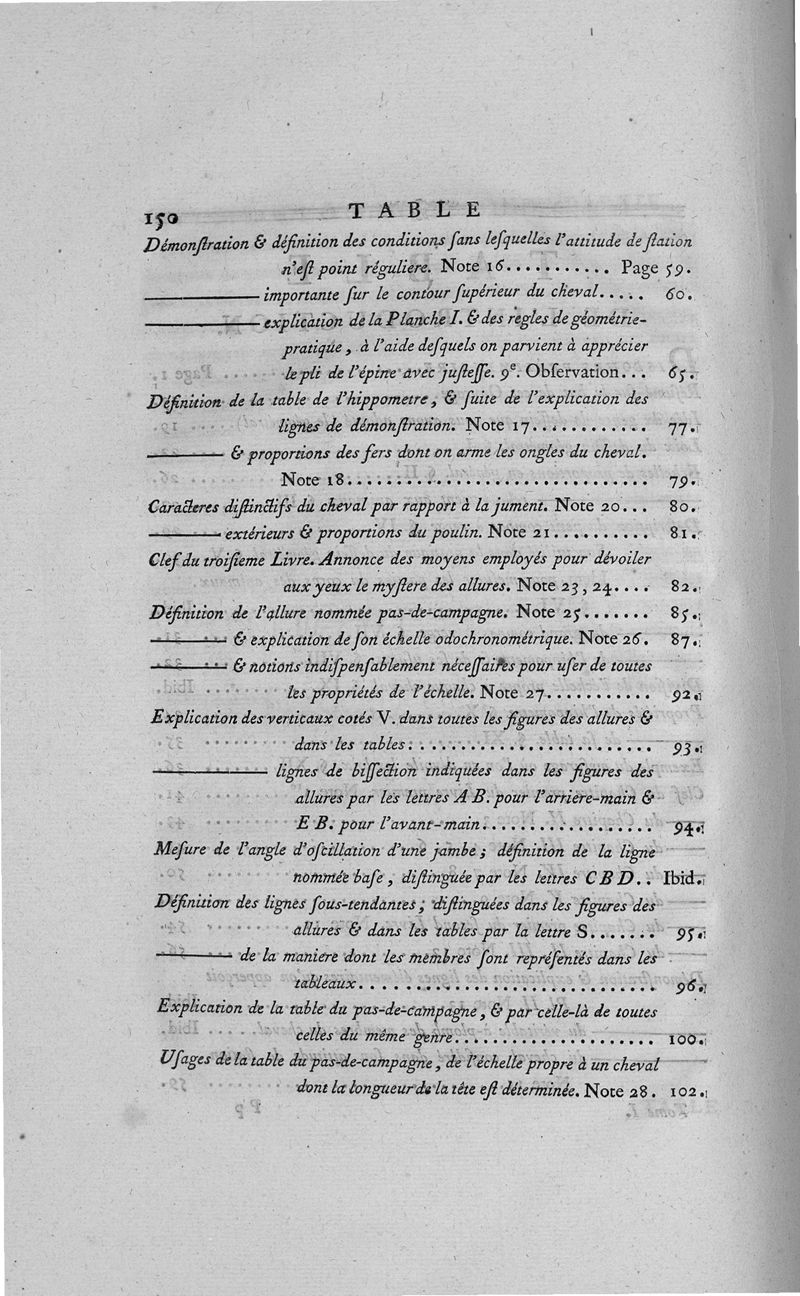 150 TABLE
Démonſtration & définition des conditions ſans leſquelles l'attitude de ſtation
n'eſt point réguliere. Note 16........... Page 59.
——— importante ſur le contour ſupérieur du cheval..... 60.
——— explication de la Planche I. & des regles de géométrie-
pratique, à l'aide deſquels on parvient à apprécier
le pli de l'épine avec juſteſſe. 9e. Obſervation... 65.
Définition de la table de l'hippometre, & ſuite de l'explication des
lignes de démonſtration. Note 17............ 77.
——— & proportions des fers dont on arme les ongles du cheval.
Note 18............................... 79.
Caracteres diſtinctifs du cheval par rapport à la jument. Note 20... 80.
——— extérieurs & proportions du poulin. Note 21.......... 81.
Clef du troiſieme Livre. Annonce des moyens employés pour dévoiler
aux yeux le myſtere des allures. Note 23, 24.... 82.
Définition de l'allure nommée pas-de-campagne. Note 25....... 85.
——— & explication de ſon échelle odochronométrique. Note 26. 87.
——— & notions indiſpenſablement néceſſaires pour uſer de toutes
les propriétés de l'échelle. Note 27........... 92.
Explication des verticaux cotés V. dans toutes les figures des allures &
dans les tables......................... 93.
——— lignes de biſſection indiquées dans les figures des
allures par les lettres A B. pour l'arriere-main &
E B. pour l'avant-main.................. 94.
Meſure de l'angle d'oſcillation d'une jambe; définition de la ligne
nommée baſe, diſtinguée par les lettres C B D.. Ibid.
Définition des lignes ſous-tendantes, diſtinguées dans les figures des
allures & dans les tables par la lettre S....... 95.
——— de la maniere dont les membres ſont repréſentés dans les
tableaux.............................. 96.
Explication de la table du pas-de-campagne, & par celle-là de toutes
celles du même genre..................... 100.
Uſages de la table du pas-de-campagne, de l'échelle propre à un cheval
dont la longueur de la tête eſt déterminée. Note 28. 102.